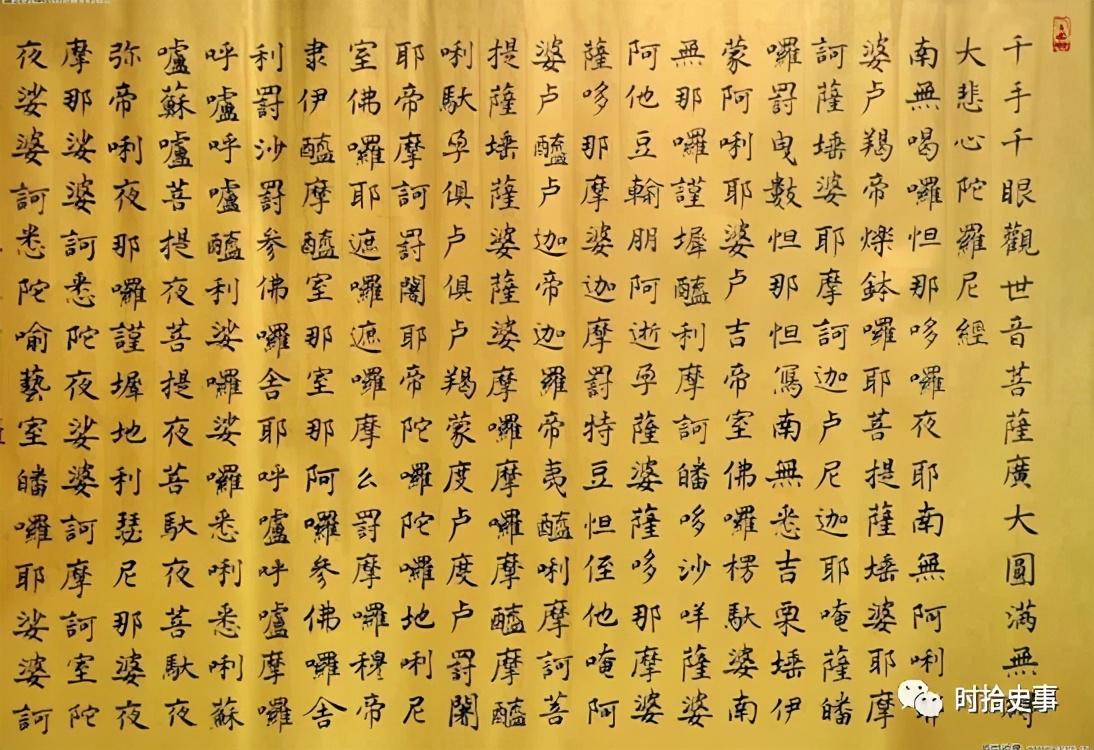 千手千眼觀世音菩薩廣大圓滿無
大悲心陀羅尼經
南無喝囉怛那哆囉夜耶南無阿唎
婆卢羯帝爍鉢囉耶菩提薩埵婆耶摩
訶薩埵婆耶摩訶迦卢尼迦耶唵薩皤
囉罰曳數怛那怛寫南無悉吉栗埵伊
蒙阿唎耶婆卢吉帝室佛囉楞馱婆南
無那囉謹墀醯利摩訶皤哆沙咩薩婆
阿他豆輸朋阿逝孕薩婆薩哆那摩婆
薩哆那摩婆迦摩罰特豆怛侄他唵阿
婆卢醯卢迦帝迦羅帝夷醯唎摩訶菩
提薩埵薩婆薩婆摩囉摩囉摩醯摩醯
唎馱孕俱卢俱卢羯蒙度卢度卢罰闍
耶帝摩訶罰闍耶帝陀囉陀囉地唎尼
室佛囉耶遮囉遮囉摩么罰摩囉穆帝
隶伊醯摩醯室那室那阿囉參佛囉舍
利罰沙罰參佛囉舍耶呼嚧呼嚧摩囉
呼嚧呼嚧醯利娑囉娑囉悉唎悉唎蘇
嚧蘇嚧菩提夜菩提夜菩馱夜菩馱夜
弥帝唎夜那囉謹墀地利瑟尼那婆夜
摩那娑婆訶悉陀夜娑婆訶摩訶室陀
夜娑婆訶悉陀喻藝室皤囉耶娑婆訶
时拾史事